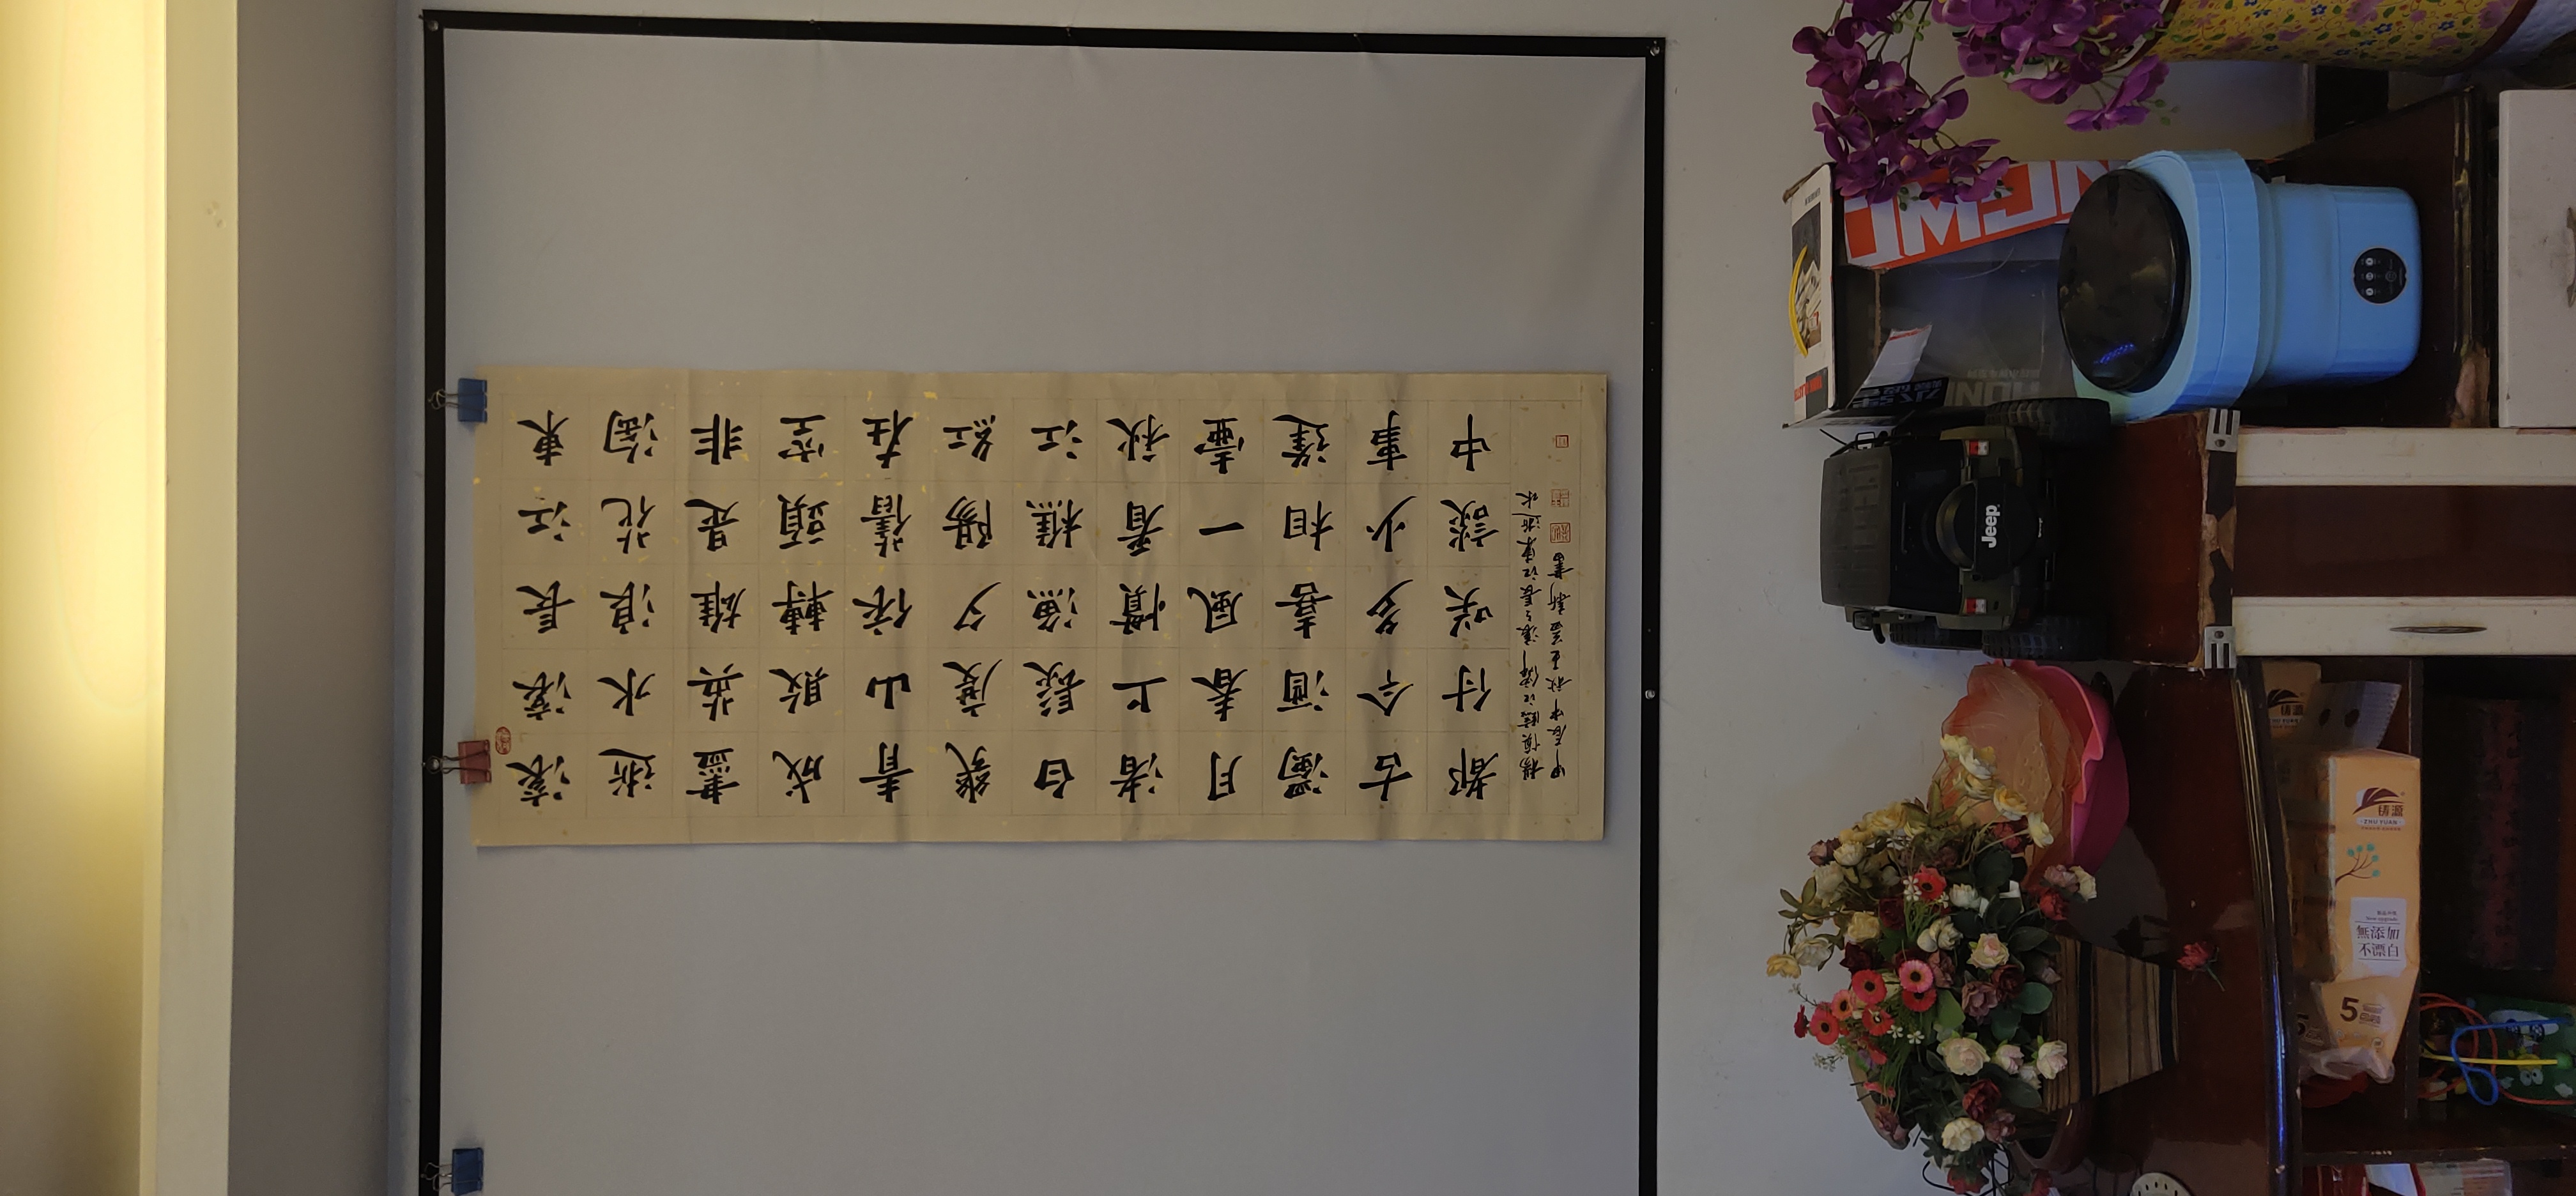 滾滾長江東
逝水浪花淘
盡英雄是非
成敗轉頭空
青山依舊在
幾度夕陽紅
白髮漁樵江
渚上慣看秋
月春風一壺
濁酒喜相逢
古今多少事
都付咲談中
楊慎臨江僊 滾々長江東逝水
甲辰中秋王益新書
Jeep
5
無添加
不漂白
ZHU YUAN